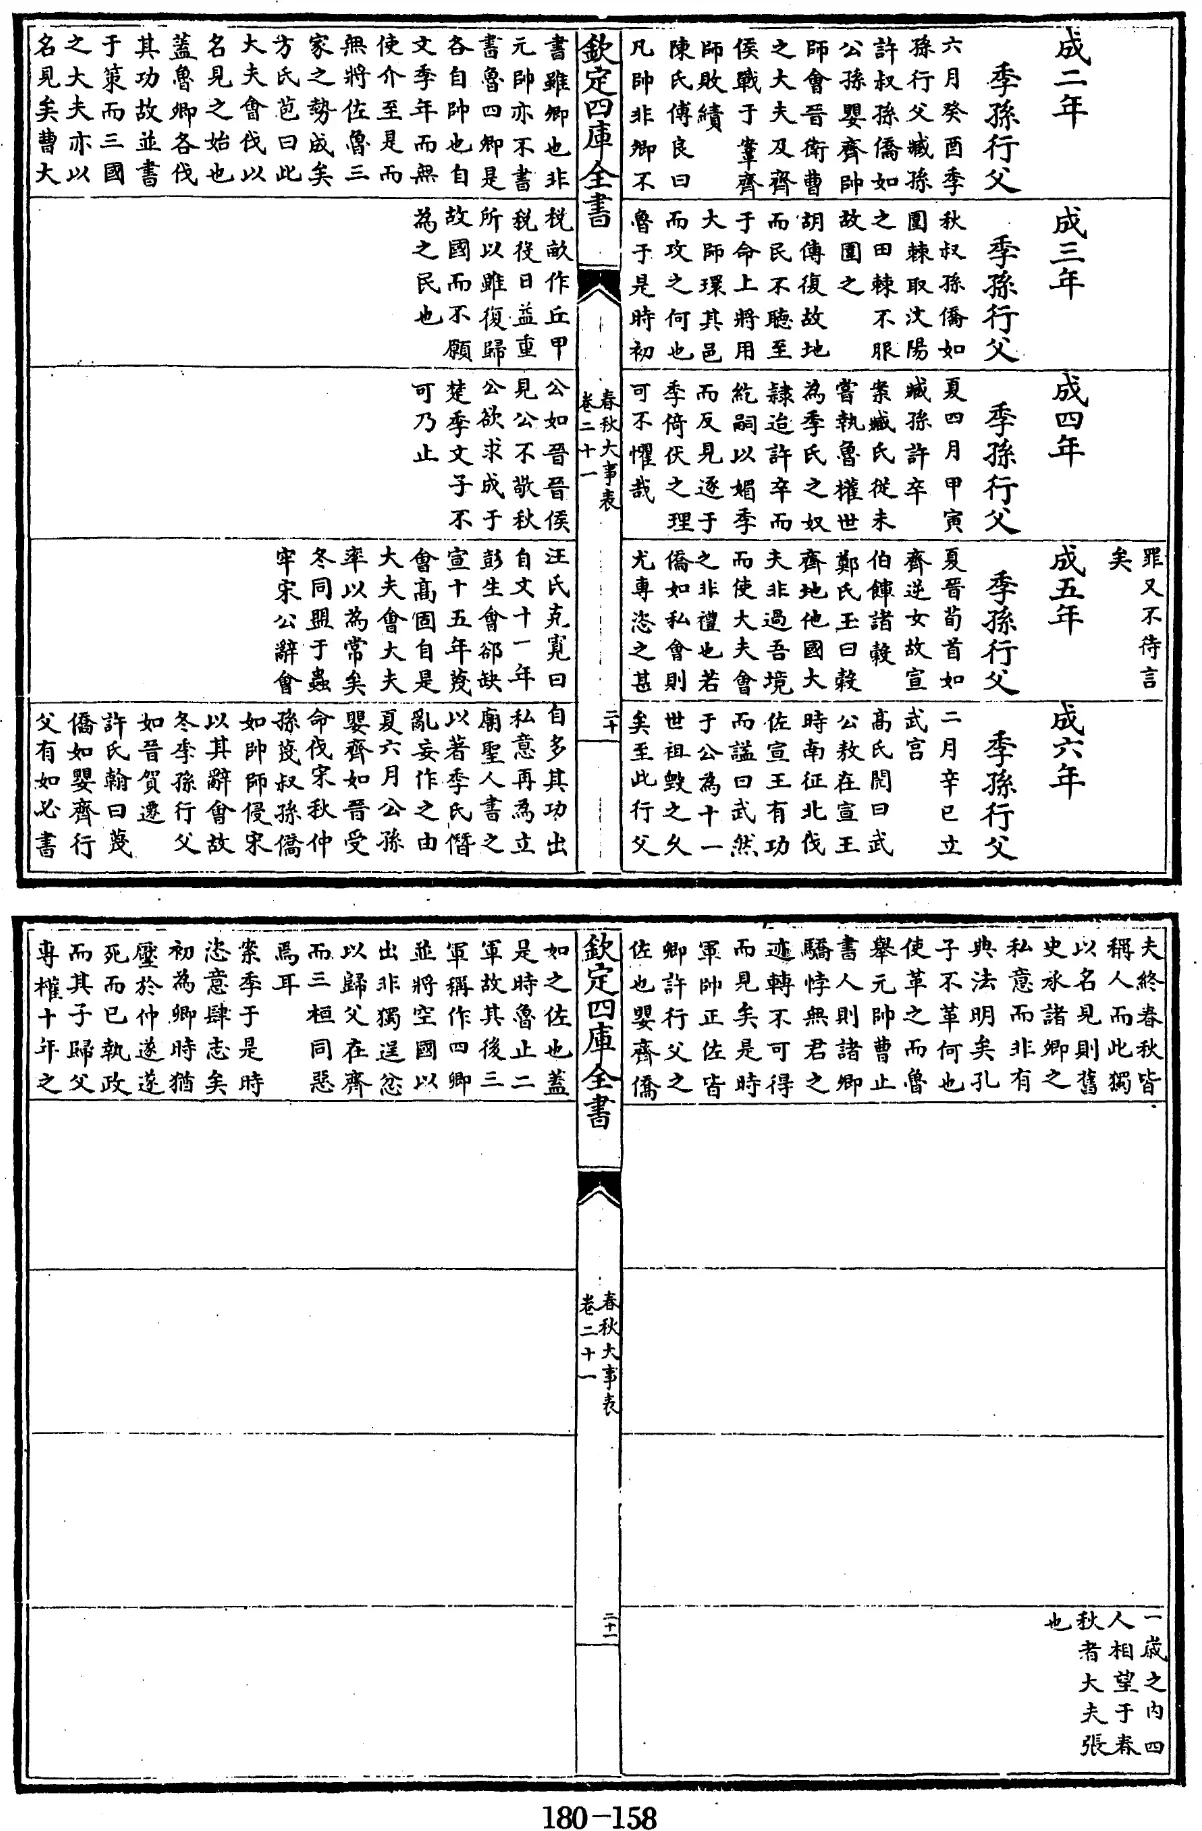 成二年
季孫行父
六月癸酉季
孫行父臧孫
許叔孫僑如
公孫嬰齊帥
師會晉衛曹
之大夫及齊
侯戰于鞌齊
師敗績
陳氏傅良曰
凡帥非卿不
成三年
季孫行父
秋叔孫僑如
圍棘取汶陽
之田棘不服
故圍之
胡傳復故地
而民不聽至
于命上將用
大師環其邑
而攻之何也
魯于是時初
成四年
季孫行父
夏四月甲寅
臧孫許卒
案臧氏從未
嘗執魯權世
為季氏之奴
隷迨許卒而
紇嗣以媚季
而反見逐于
季倚伏之理
可不懼哉
罪又不待言
矣
成五年
季孫行父
夏晉荀首如
齊逆女故宣
伯餫諸穀
鄭氏玉曰穀
齊地他國大
夫非過吾境
而使大夫會
之非禮也若
僑如私會則
尤専恣之甚
成六年
季孫行父
二月辛巳立
武宮
髙氏閌曰武
公敖在宣王
時南征北伐
佐宣王有功
而諡曰武然
于公為十一
世祖毀之久
矣至此行父
欽定四庫全書
春秋大事表
卷二十一
二十
書雖卿也非
元帥亦不書
書魯四卿是
各自帥也自
文季年而無
使介至是而
無將佐魯三
家之勢成矣
方氏苞曰此
大夫會伐以
名見之始也
蓋魯卿各伐
其功故並書
于策而三國
之大夫亦以
名見矣曹大
税畝作丘甲
税役日益重
所以雖復歸
故國而不願
為之民也
公如晉晉侯
見公不敬秋
公欲求成于
楚季文子不
可乃止
汪氏克寛曰
自文十一年
彭生會郤缺
宣十五年蔑
會髙固自是
大夫會大夫
率以為常矣
冬同盟于蟲
牢宋公辭會
自多其功出
私意再為立
廟聖人書之
以著季氏僭
亂妄作之由
夏六月公孫
嬰齊如晉受
命伐宋秋仲
孫蔑叔孫僑
如帥師侵宋
以其辭會故
冬季孫行父
如晉賀遷
許氏翰曰蔑
僑如嬰齊行
父有如必書
夫終春秋皆
稱人而此獨
以名見則舊
史承諸卿之
私意而非有
典法明矣孔
子不革何也
使革之而魯
舉元帥曹止
書人則諸卿
驕悖無君之
迹轉不可得
而見矣是時
軍帥正佐皆
卿許行父之
佐也嬰齊僑
一歲之内四
人相望于春
秋者大夫張
也
欽定四庫全書
春秋大事表
卷二十一
二十一
如之佐也蓋
是時魯止二
軍故其後三
軍稱作四卿
並將空國以
出非獨逞忿
以歸父在齊
而三桓同惡
焉耳
案季于是時
恣意肆志矣
初為卿時猶
壓於仲遂遂
死而已執政
而其子歸父
専權十年之
180-158